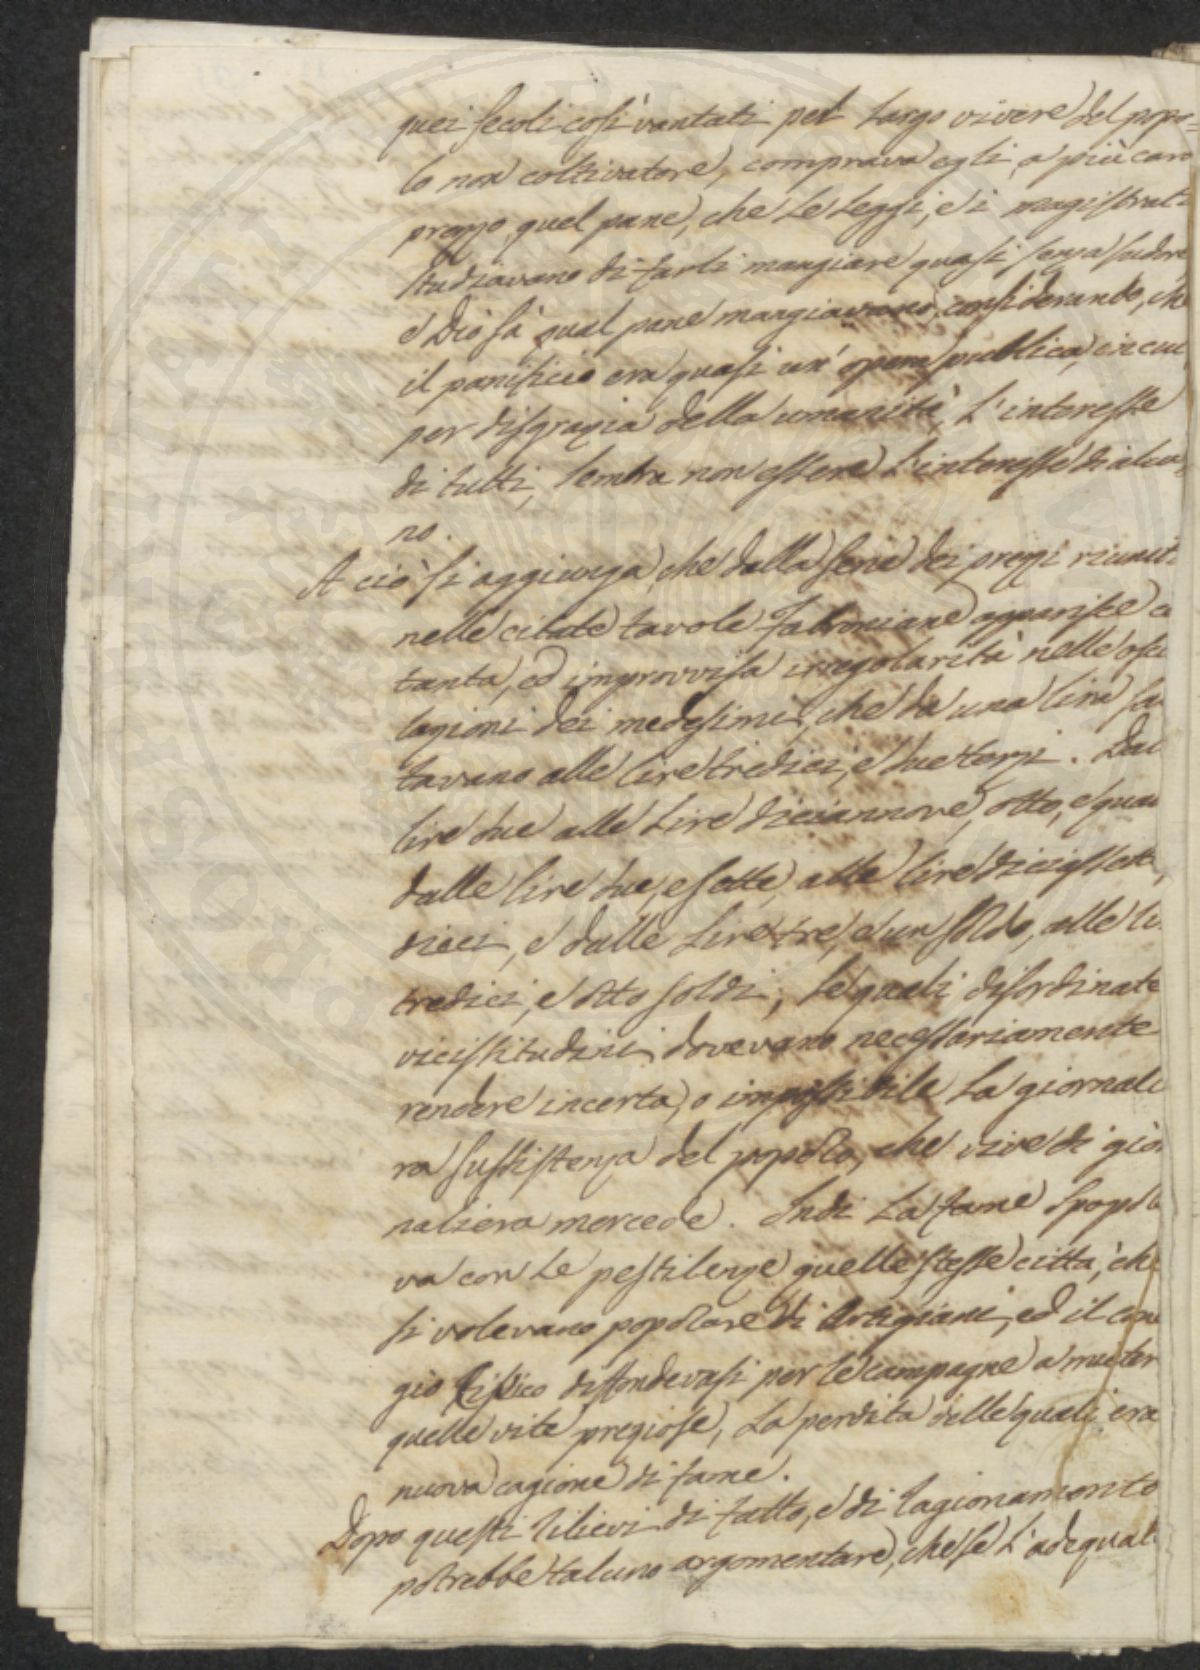 quei secoli così vantati pel largo vivere del popo=
lo non coltivatore, comprava egli a più caro
prezzo quel pane, che le leggi, e i magistrati
studiavano di farli mangiare quasi senza sudore
e Dio sà qual pane mangiavano, considerando, che
il panificio era quasi un' opera pubblica, in cui
per disgrazia della umanità, l'interesse
di tutti, sembra non essere l'interesse di alcu,
no.
A ciò si aggiunga, che dalla serie dei prezzi riuniti
nelle citate tavole Fabroniane apparisce
tanta, ed improvvisa irregolarità nelle oscil
lazioni dei medesimi, che da una lira sal
tavano alle lire tredici, e due terzi. Dal
lire due alle lire diciannove, otto, e quat
dalle lire due, e sette, alle lire diciassette,
dieci, e dalle lire tre, e un soldo, alle li
tredici, e otto soldi; le quali disordinate
vicissitudini dovevano necessariamente
rendere incerta, o impossibile la giornali
ra sussistenza del popolo, che vive di gior
naliera mercede. Indi la fame spopola
va con le pestilenze quelle stesse città, che
si volevano popolare di Artigiani, ed il conta
gio diffondevasi per le campagne a mieter
quelle vite preziose, la perdita delle quali era
nuova cagione di fame.
Dopo questi rilievi di fatto, e di ragionamento
potrebbe taluno argomentare, che se l'adequat